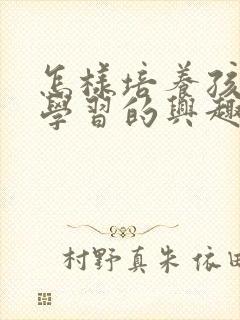 怎樣培養孩
學習的興趣
村野真朱 依田